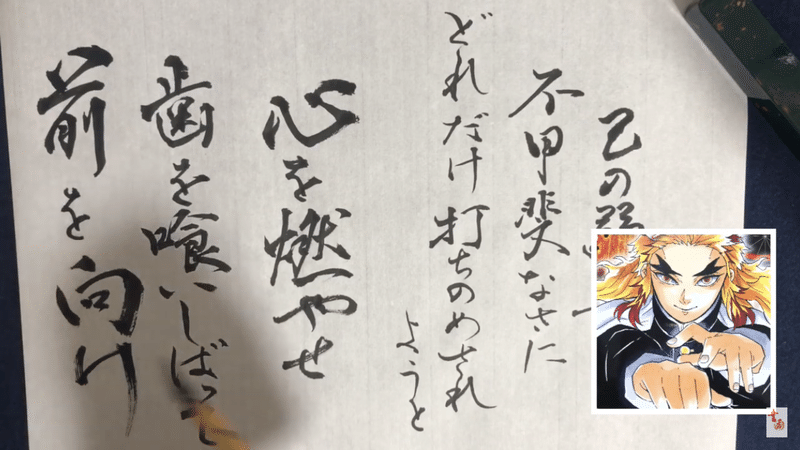 己の弱
不甲斐なさに
どれだけ打ちのめされ
ようと
心を燃やせ
歯を喰いしばって
前を向け